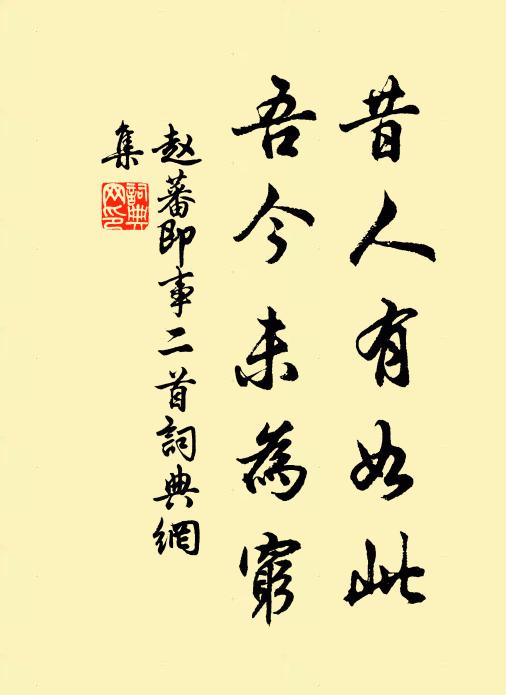 昔人有如此
吾今未為窮
赵蕃即事二首詞典網
集
詞典網印